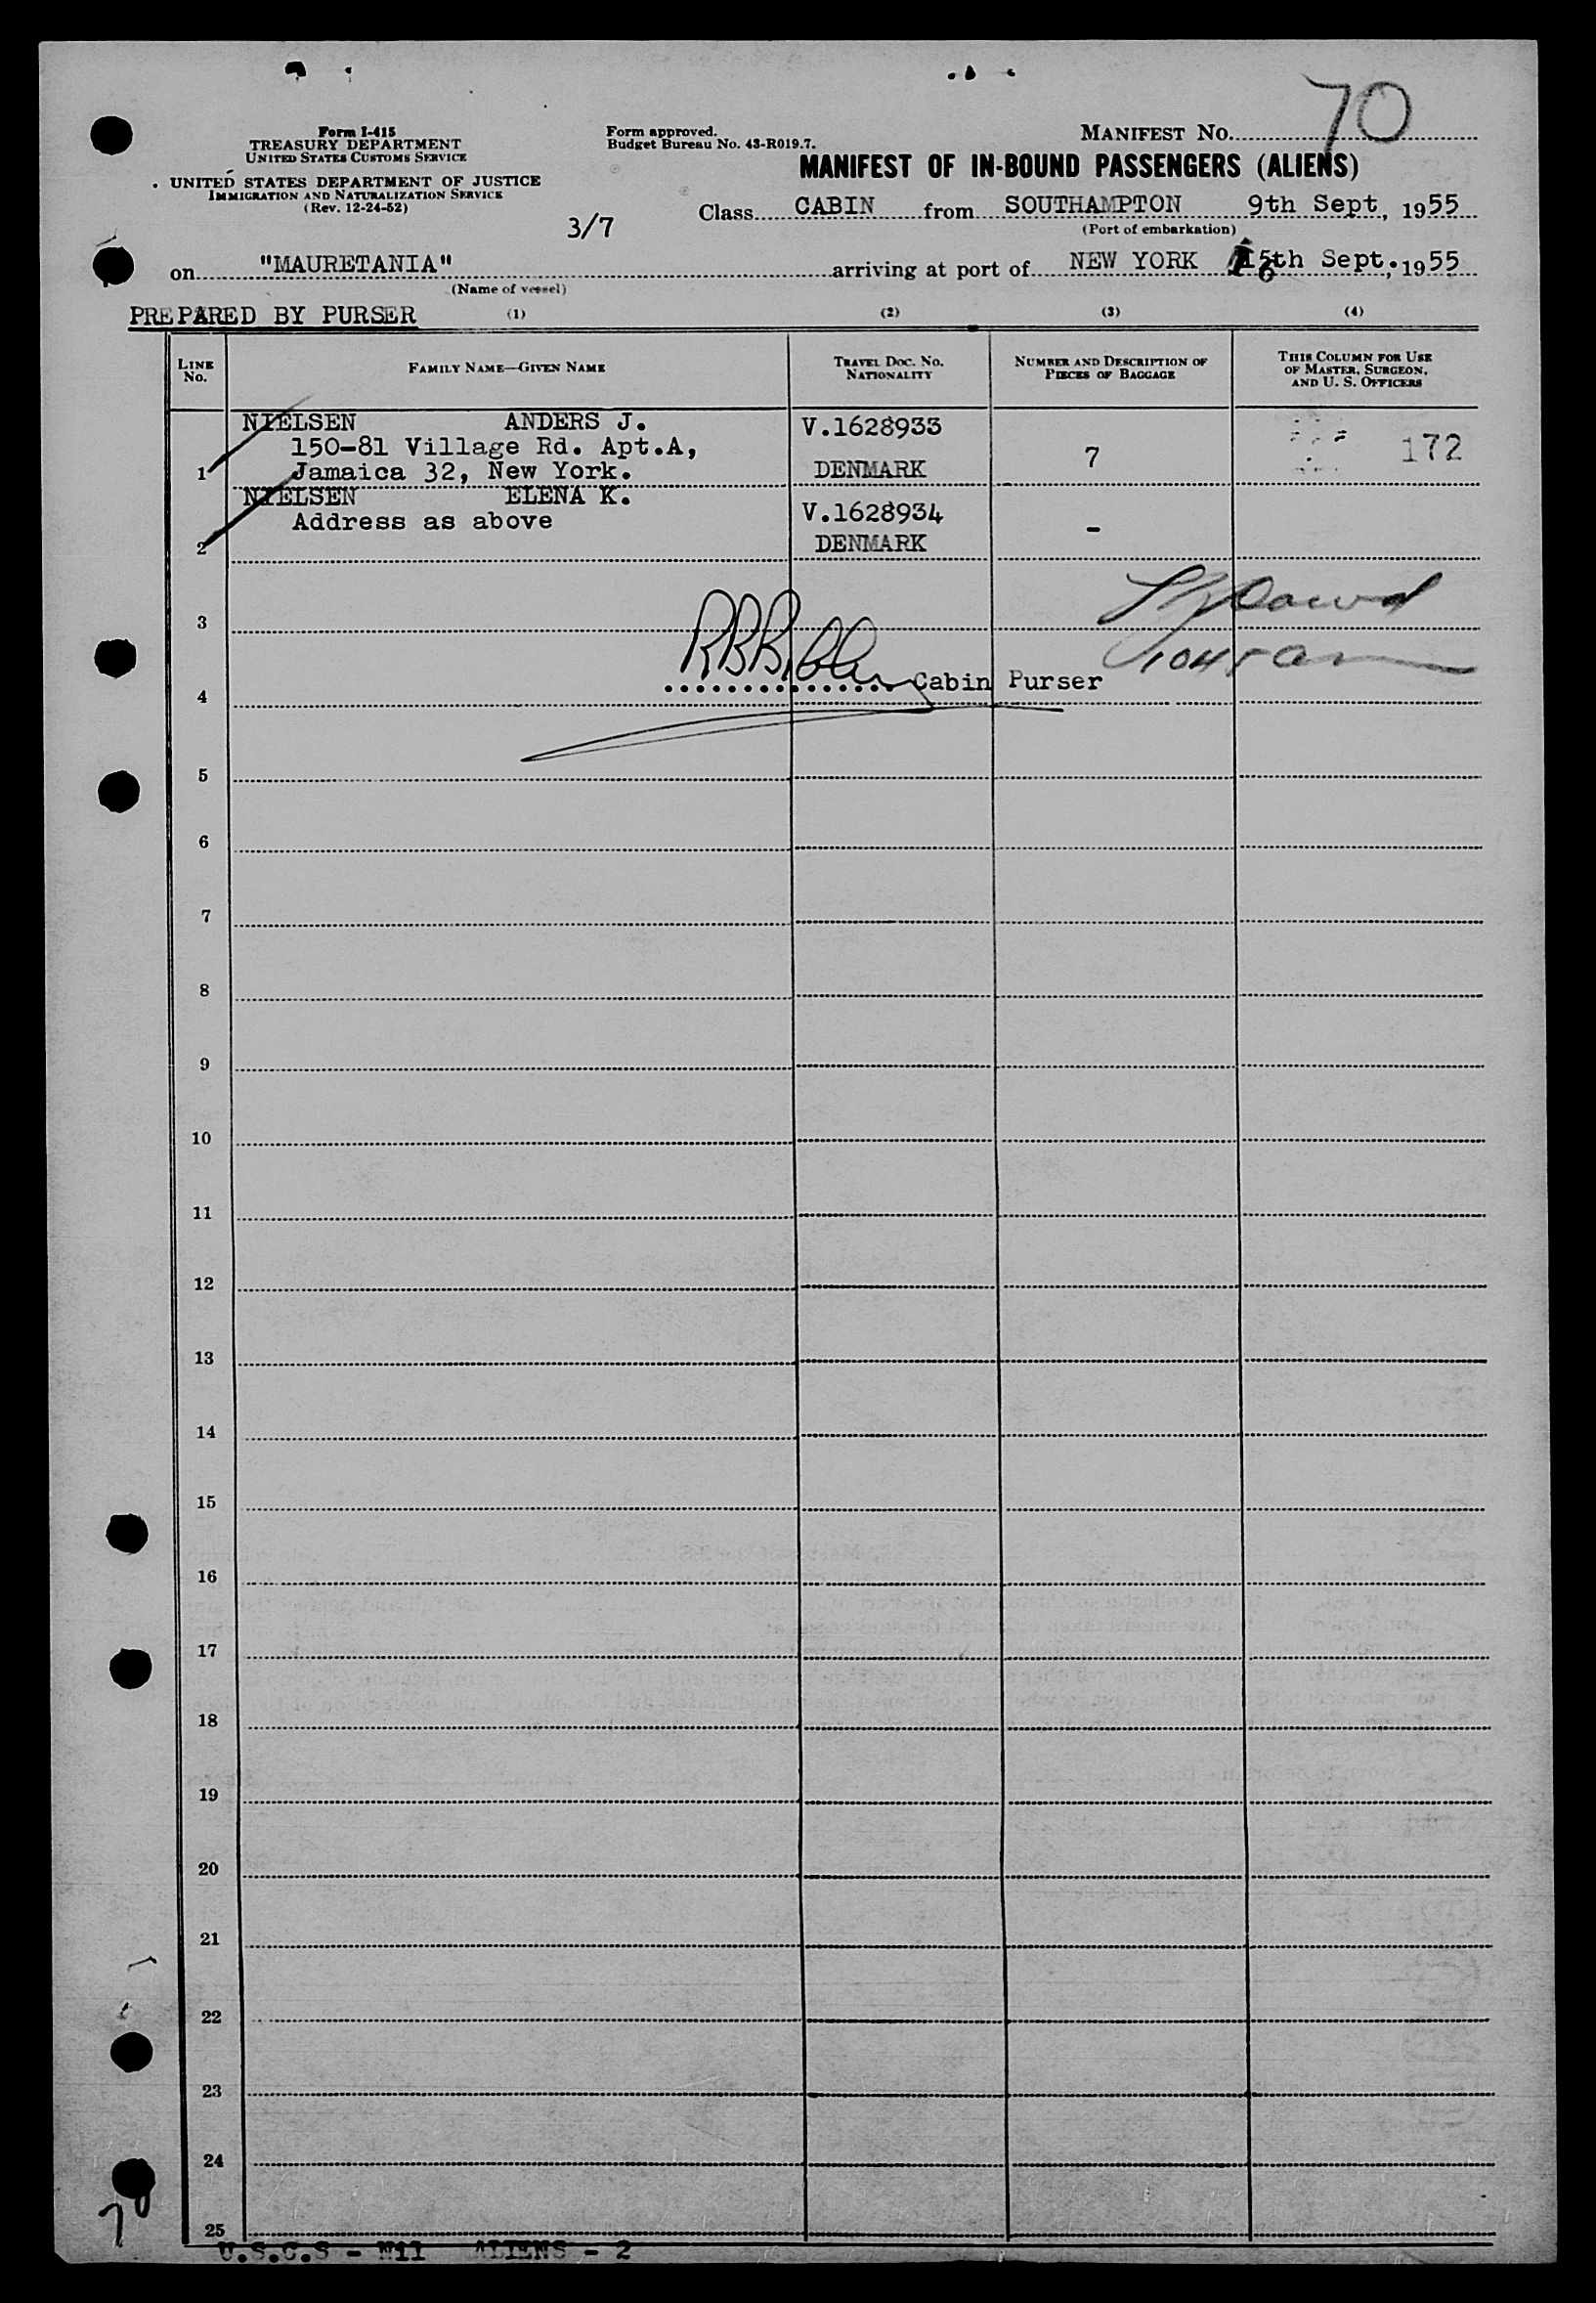 70
Form I-415
TREASURY DEPARTMENT
UNITED STATES CUSTOMS SERVICE
UNITED STATES DEPARTMENT OF JUSTICE
IMMIGRATION AND NATURALIZATION SERVICE
(Rev. 12-24-52)
Form approved.
Budget Bureau No. 43-R019.7.
MANIFEST NO.
MANIFEST OF IN-BOUND PASSENGERS (ALIENS)
3/7
Class CABIN from SOUTHAMPTON 9th Sept, 1955
(Port of embarkation)
on "MAURETANIA" arriving at port of NEW YORK 16th Sept., 1955
(Name of vessel)
PREPARED BY PURSER
(1) (2) (3) (4)
LINE NO.
FAMILY NAME—GIVEN NAME
TRAVEL DOC. NO.
NATIONALITY
NUMBER AND DESCRIPTION OF
PIECES OF BAGGAGE
THIS COLUMN FOR USE
OF MASTER, SURGEON,
AND U. S. OFFICERS
NIELSEN ANDERS J. V.1628933
150-81 Village Rd. Apt.A, 7 172
1 Jamaica 32, New York. DENMARK
NIELSEN ELENA K. V.1628934
Address as above -
2 DENMARK
3
1045 am
Cabin Purser
4
5
6
7
8
9
10
11
12
13
14
15
16
17
18
19
20
21
22
23
24
25
70
U.S.C.S - Nil ALIENS - 2